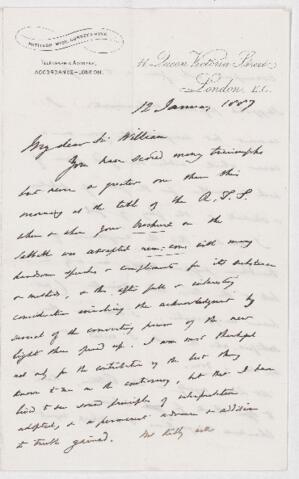 Telegraphic Address,
ACCORDANCE-LONDON.
Queen Victoria Street
London, E.C.
12 January 1887
My dear Sir William
You have scored many triumphs
but never a greater one than this
morning at the table of the
when your brochure on the
Sabbath was accepted nem: con: with many
handsome speeches & compliments for its substance
& method, & this after full & interesting
consideration involving the acknowledgment by
several of the converting power of the new
light thus opened up. I was most thankful
not only for the contribution of the best thing
known to me on the controversy, but that I have
lived to see sound principles of interpretation
adopted, & a permanent advance in addition
to truth gained.